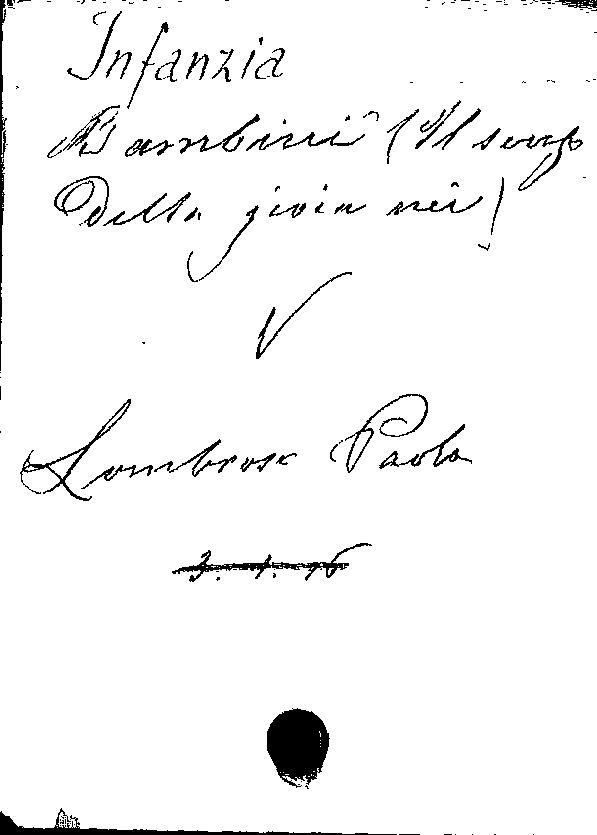 Infanzia
Bambini (Il senso
Della gioia nei)
V
Lombroso Paola
3. 1. 16